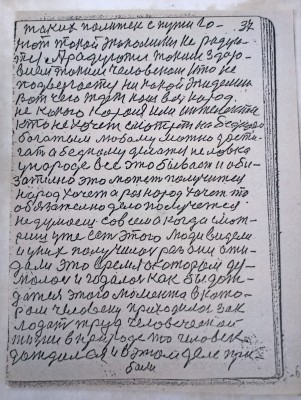 таких политек с пути го-
37
нот такой экономики не радую-
ту. А радуютя таким здоро-
вием таким человеком что не
подвергасту ни какой эпидемии
вот чего ждет наш вся народ,
не какого короля или интелегента
кто не хочет смотрить на бедного
богатым любами можно дости-
гат а бедному даже не ловко
у породе все это бывает и оби-
зательно это может получится
народ хочет а раз народ хочет то
обязательно дело получется
не думаеш совсем а когда смот-
риш уже сет этого люди видели
и у них получилос раз они ожи-
дали это время о котором ду-
молос и годалос как бы дож-
датся этого момента в кото-
ром человеку приходилос зак
ладат труд человеческой
жизни в природе то человек
дождался и в этом деле при-
были